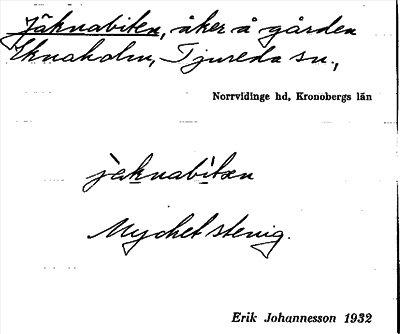 Jäknabiten, åker å gården
Eknaholm, Tjureda sn.,
Norrvidinge hd, Kronobergs län
jäknabitæn
Mycket stenig.
Erik Johannesson 1932